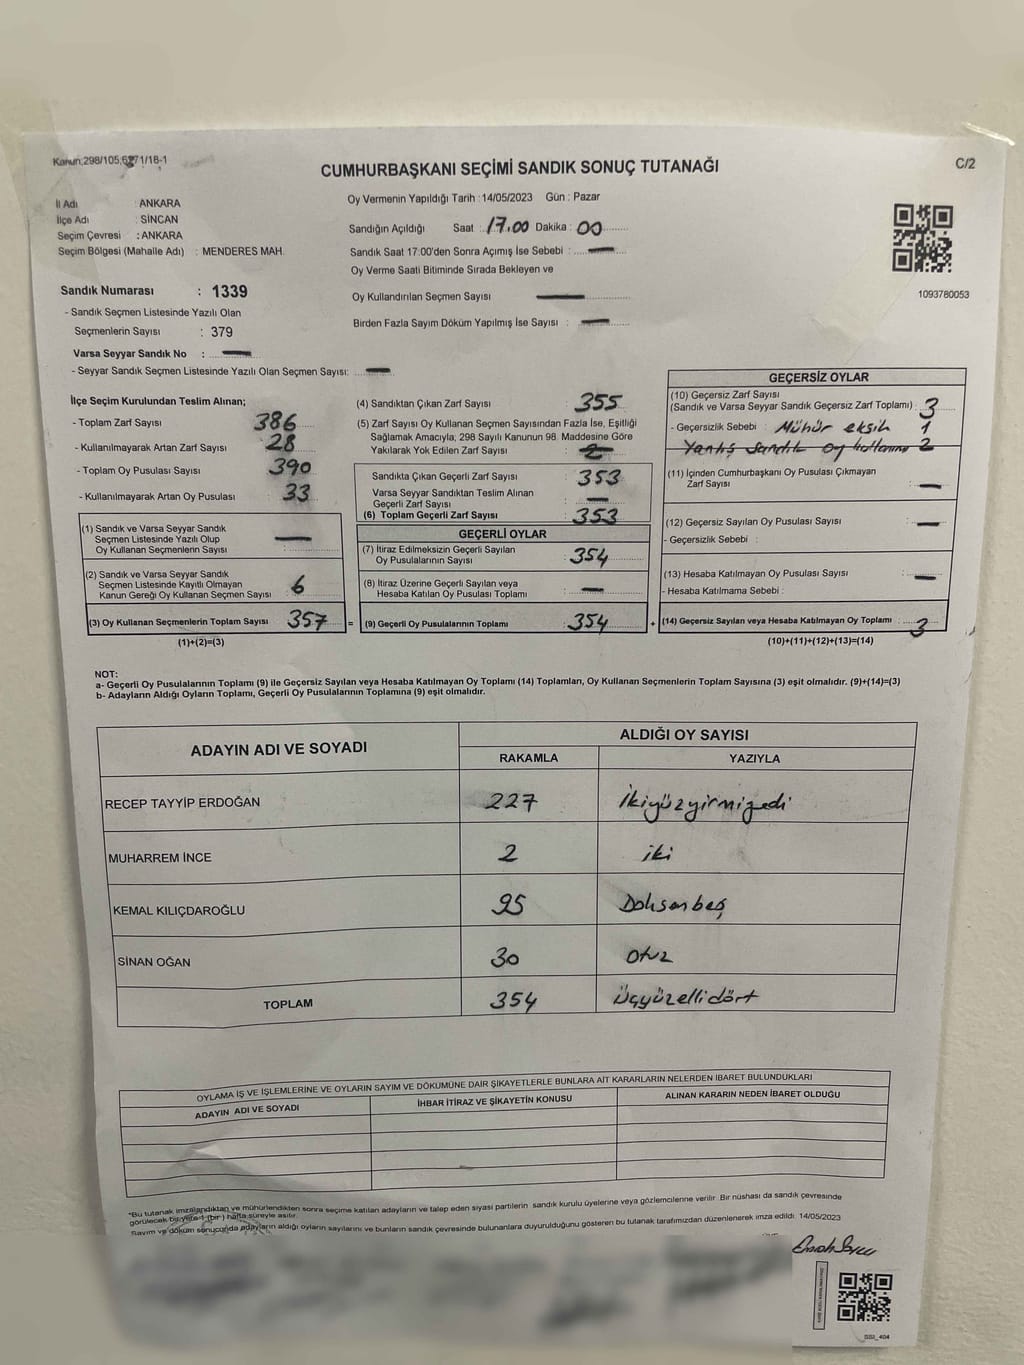 Kanun;298/105;6271/18-1
CUMHURBAŞKANI SEÇİMİ SANDIK SONUÇ TUTANAĞI
C/2
İl Adı : ANKARA
İlçe Adı : SİNCAN
Seçim Çevresi : ANKARA
Seçim Bölgesi (Mahalle Adı) : MENDERES MAH.
Oy Vermenin Yapıldığı Tarih : 14/05/2023 Gün : Pazar
Sandığın Açıldığı Saat : 17.00 Dakika : 00
Sandık Saat 17:00'den Sonra Açımış İse Sebebi : —
Oy Verme Saati Bitiminde Sırada Bekleyen ve
Oy Kullandırılan Seçmen Sayısı —
Birden Fazla Sayım Döküm Yapılmış İse Sayısı : —
1093780053
Sandık Numarası : 1339
- Sandık Seçmen Listesinde Yazılı Olan
Seçmenlerin Sayısı : 379
Varsa Seyyar Sandık No : —
- Seyyar Sandık Seçmen Listesinde Yazılı Olan Seçmen Sayısı: —
İlçe Seçim Kurulundan Teslim Alınan;
- Toplam Zarf Sayısı 386
- Kullanılmayarak Artan Zarf Sayısı 28
- Toplam Oy Pusulası Sayısı 390
- Kullanılmayarak Artan Oy Pusulası 33
(1) Sandık ve Varsa Seyyar Sandık
Seçmen Listesinde Yazılı Olup
Oy Kullanan Seçmenlerin Sayısı : —
(2) Sandık ve Varsa Seyyar Sandık
Seçmen Listesinde Kayıtlı Olmayan
Kanun Gereği Oy Kullanan Seçmen Sayısı : 6
(3) Oy Kullanan Seçmenlerin Toplam Sayısı 357 =
(1)+(2)=(3)
(4) Sandıktan Çıkan Zarf Sayısı 355
(5) Zarf Sayısı Oy Kullanan Seçmen Sayısından Fazla İse, Eşitliği
Sağlamak Amacıyla; 298 Sayılı Kanunun 98. Maddesine Göre
Yakılarak Yok Edilen Zarf Sayısı : 2
Sandıkta Çıkan Geçerli Zarf Sayısı : 353
Varsa Seyyar Sandıktan Teslim Alınan
Geçerli Zarf Sayısı : —
(6) Toplam Geçerli Zarf Sayısı : 353
GEÇERLİ OYLAR
(7) İtiraz Edilmeksizin Geçerli Sayılan
Oy Pusulalarının Sayısı : 354
(8) İtiraz Üzerine Geçerli Sayılan veya
Hesaba Katılan Oy Pusulası Toplamı : —
(9) Geçerli Oy Pusulalarının Toplamı : 354 +
GEÇERSİZ OYLAR
(10) Geçersiz Zarf Sayısı
(Sandık ve Varsa Seyyar Sandık Geçersiz Zarf Toplamı) : 3
- Geçersizlik Sebebi : Mühür eksik 1
Yanlış sandık oy kullanımı 2
(11) İçinden Cumhurbaşkanı Oy Pusulası Çıkmayan
Zarf Sayısı : —
(12) Geçersiz Sayılan Oy Pusulası Sayısı : —
- Geçersizlik Sebebi :
(13) Hesaba Katılmayan Oy Pusulası Sayısı : —
- Hesaba Katılmama Sebebi :
(14) Geçersiz Sayılan veya Hesaba Katılmayan Oy Toplamı : 3
(10)+(11)+(12)+(13)=(14)
NOT:
a- Geçerli Oy Pusulalarının Toplamı (9) ile Geçersiz Sayılan veya Hesaba Katılmayan Oy Toplamı (14) Toplamları, Oy Kullanan Seçmenlerin Toplam Sayısına (3) eşit olmalıdır. (9)+(14)=(3)
b- Adayların Aldığı Oyların Toplamı, Geçerli Oy Pusulalarının Toplamına (9) eşit olmalıdır.
ADAYIN ADI VE SOYADI ALDIĞI OY SAYISI
RAKAMLA YAZIYLA
RECEP TAYYİP ERDOĞAN 227 İkiyüzyirmiyedi
MUHARREM İNCE 2 iki
KEMAL KILIÇDAROĞLU 95 Doksanbeş
SİNAN OĞAN 30 otuz
TOPLAM 354 Üçyüzellidört
OYLAMA İŞ VE İŞLEMLERİNE VE OYLARIN SAYIM VE DÖKÜMÜNE DAİR ŞİKAYETLERLE BUNLARA AİT KARARLARIN NELERDEN İBARET BULUNDUKLARI
ADAYIN ADI VE SOYADI İHBAR İTİRAZ VE ŞİKAYETİN KONUSU ALINAN KARARIN NEDEN İBARET OLDUĞU
*Bu tutanak imzalandıktan ve mühürlendikten sonra seçime katılan adayların ve talep eden siyasi partilerin sandık kurulu üyelerine veya gözlemcilerine verilir. Bir nüshası da sandık çevresinde
görülecek bir yere 1 (bir) hafta süreyle asılır.
Sayım ve döküm sonucunda adayların aldığı oyların sayılarını ve bunların sandık çevresinde bulunanlara duyurulduğunu gösteren bu tutanak tarafımızdan düzenlenerek imza edildi. 14/05/2023
SSI_404